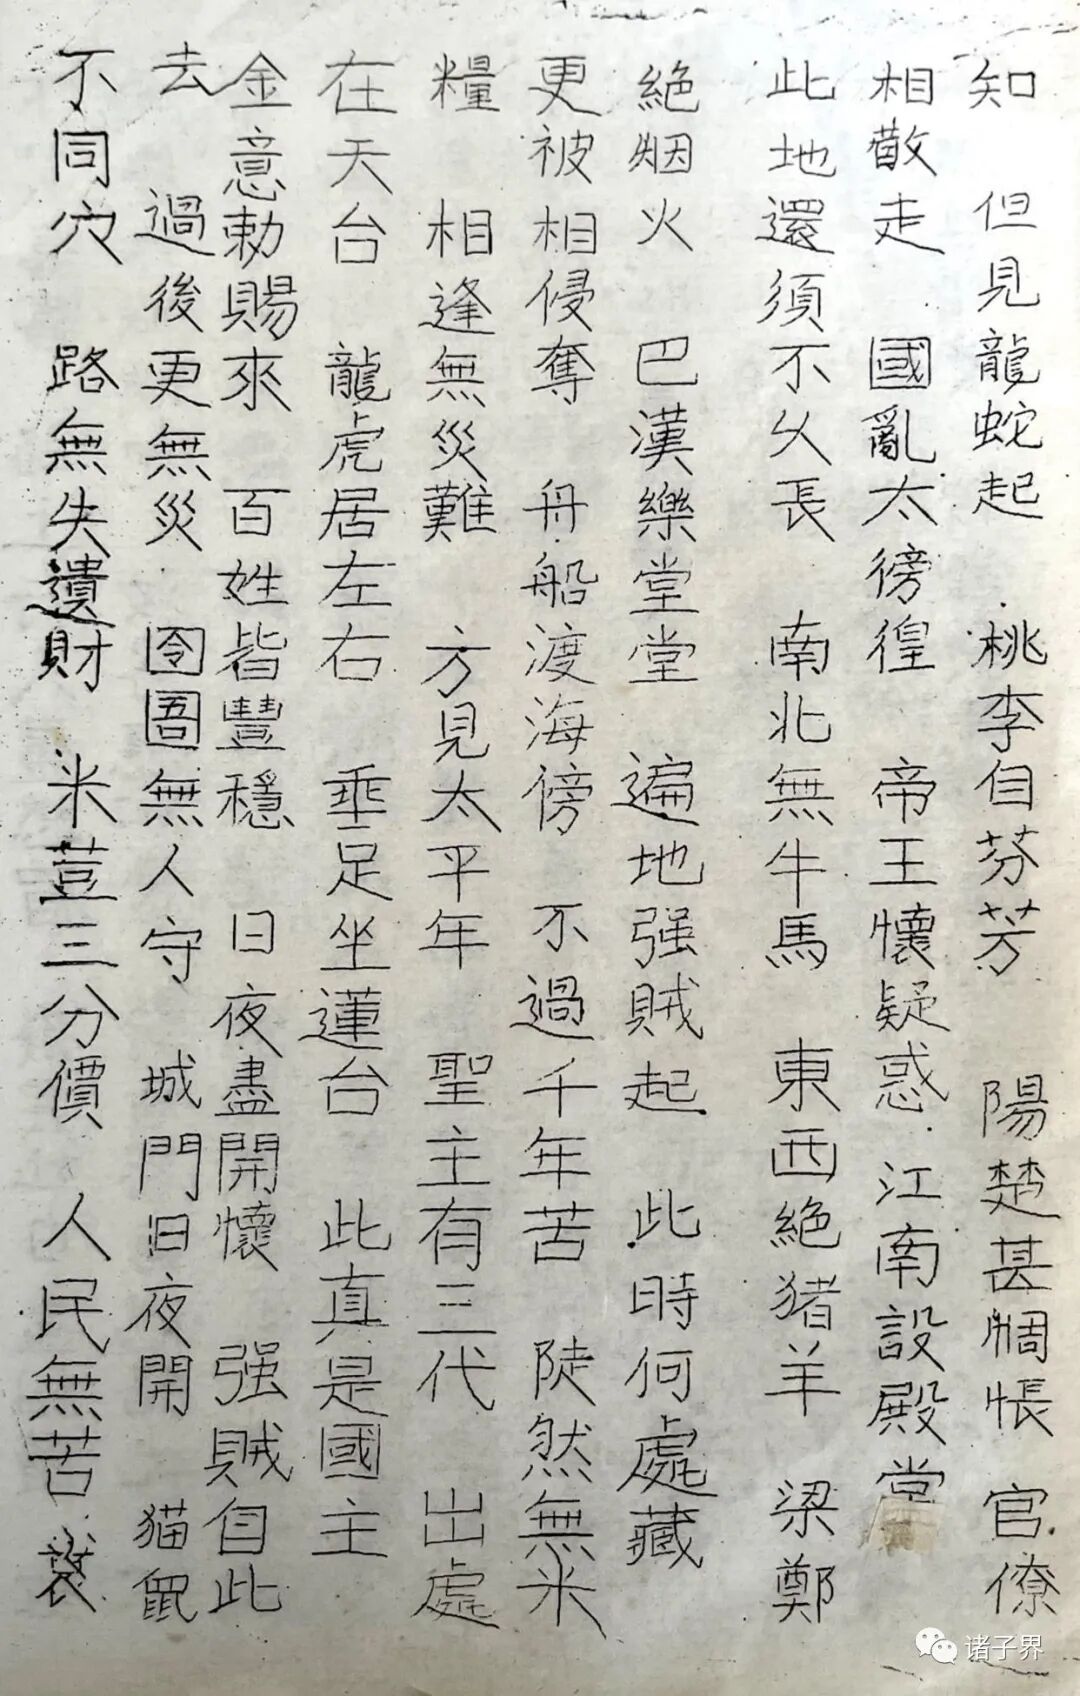 知 但見龍蛇起 桃李自芬芳 陽楚甚惆悵 官僚
相散走 國亂太徬徨 帝王懷疑惑 江南設殿堂
此地還須不久長 南北無牛馬 東西絕猪羊 梁鄭
絕烟火 巴漢樂堂堂 遍地强賊起 此時何處藏
更被相侵奪 舟船渡海傍 不過千年苦 陡然無米
糧 相逢無災難 方見太平年 聖主有三代 出處
在天台 龍虎居左右 垂足坐蓮台 此真是國主
金意勅賜來 百姓皆豐穩 日夜盡開懷 强賊自此
去 過後更無災 囹圄無人守 城門日夜開 猫鼠
不同穴 路無失遺財 米荳三分價 人民無苦
诸子界